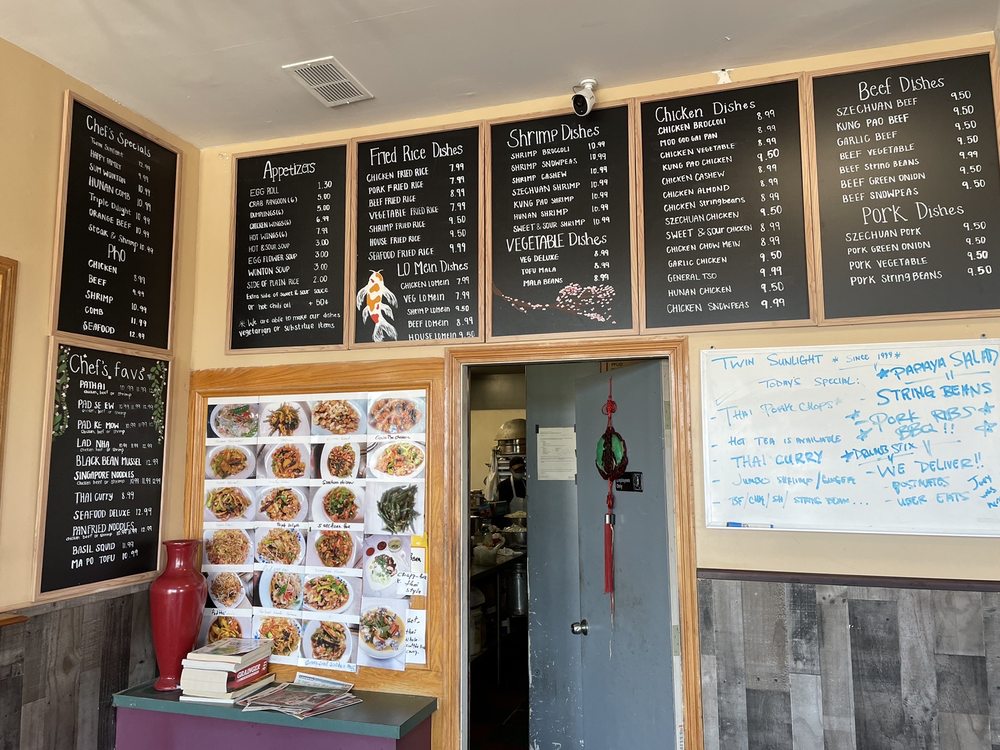 Chef's Specials
TWIN SUNLIGHT 12.99
HAPPY FAMILY 12.99
SUM WONTON 9.99
HUNAN COMB 10.99
Triple Delight 10.99
ORANGE BEEF 10.99
Steak & Shrimp 10.99
PhO
CHICKEN 8.99
BEEF 9.99
SHRIMP 10.99
COMB 11.99
SEAFOOD 12.99
Chef's favs
PATHAI 10.99 11.99
chicken, beef or shrimp
PAD SE EW
chicken, beef or shrimp
PAD KE MOW
chicken, beef or shrimp
LAD NHA
chicken, beef or shrimp
BLACK BEAN MUSSEL 12.99
SINGAPORE NOODLES
chicken, beef or shrimp
THAI CURRY 8.99
SEAFOOD DELUXE 12.99
PANFRIED NOODLES
chicken, beef or shrimp
BASIL SQUID 11.99
MA PO TOFU 10.99
Appetizers
EGG ROLL 1.30
CRAB RANGOON (6) 5.00
DUMPLINGS (6) 5.00
CHICKEN WINGS (6) 6.99
HOT WINGS (6) 7.99
HOT & SOUR SOUP 3.00
EGG FLOWER SOUP 3.00
WONTON SOUP 3.00
SIDE OF PLAIN RICE 2.00
Extra side of sweet & sour sauce
or hot chili oil + 50¢
* We are able to make our dishes
vegetarian or substitute items
FRIED RICE Dishes
CHICKEN FRIED RICE 7.99
PORK FRIED RICE 7.99
BEEF FRIED RICE 8.99
VEGETABLE FRIED RICE 7.99
SHRIMP FRIED RICE 9.50
HOUSE FRIED RICE 9.50
SEAFOOD FRIED RICE 9.99
LO Mein Dishes
CHICKEN LO MEIN 7.99
VEG LO MEIN 7.99
SHRIMP LO MEIN 9.50
BEEF LO MEIN 8.99
HOUSE LO MEIN 9.50
SHRIMP Dishes
SHRIMP BROCCOLI 10.99
SHRIMP SNOWPEAS 10.99
SHRIMP CASHEW 10.99
SZECHUAN SHRIMP 10.99
KUNG PAO SHRIMP 10.99
HUNAN SHRIMP 10.99
SWEET & SOUR SHRIMP 10.99
VEGETABLE Dishes
VEG DELUXE 8.99
TOFU MALA 8.99
MALA BEANS 8.99
Chicken Dishes
CHICKEN BROCCOLI 8.99
MOO GOO GAI PAN 8.99
CHICKEN VEGETABLE 8.99
KUNG PAO CHICKEN 9.50
CHICKEN CASHEW 8.99
CHICKEN ALMOND 8.99
CHICKEN Stringbeans 8.99
SZECHUAN CHICKEN 9.50
SWEET & SOUR CHICKEN 8.99
CHICKEN CHOW MEIN 8.99
GARLIC CHICKEN 9.50
GENERAL TSO 9.99
HUNAN CHICKEN 9.50
CHICKEN SNOWPEAS 9.99
Beef Dishes
SZECHUAN BEEF 9.50
KUNG PAO BEEF 9.50
GARLIC BEEF 9.50
BEEF VEGETABLE 9.50
BEEF String BEANS 9.99
BEEF GREEN ONION 9.50
BEEF SNOWPEAS 9.50
PORK Dishes
SZECHUAN PORK 9.50
PORK GREEN ONION 9.50
PORK VEGETABLE 9.50
PORK String BEANS 9.50
TWIN SUNLIGHT * SINCE 1999 *
TODAYS SPECIAL:
THAI PORK CHOPS
- HOT TEA IS AVAILABLE
- THAI CURRY
- JUMBO SHRIMP/GINGER
* PAPAYA SALAD !!
STRING BEANS
PORK RIBS
BBQ !!
* DRUMSTIX
- WE DELIVER!!
POSTMATES
UBER EATS
crispy
thai
style
Employees
Only
GRAINGER